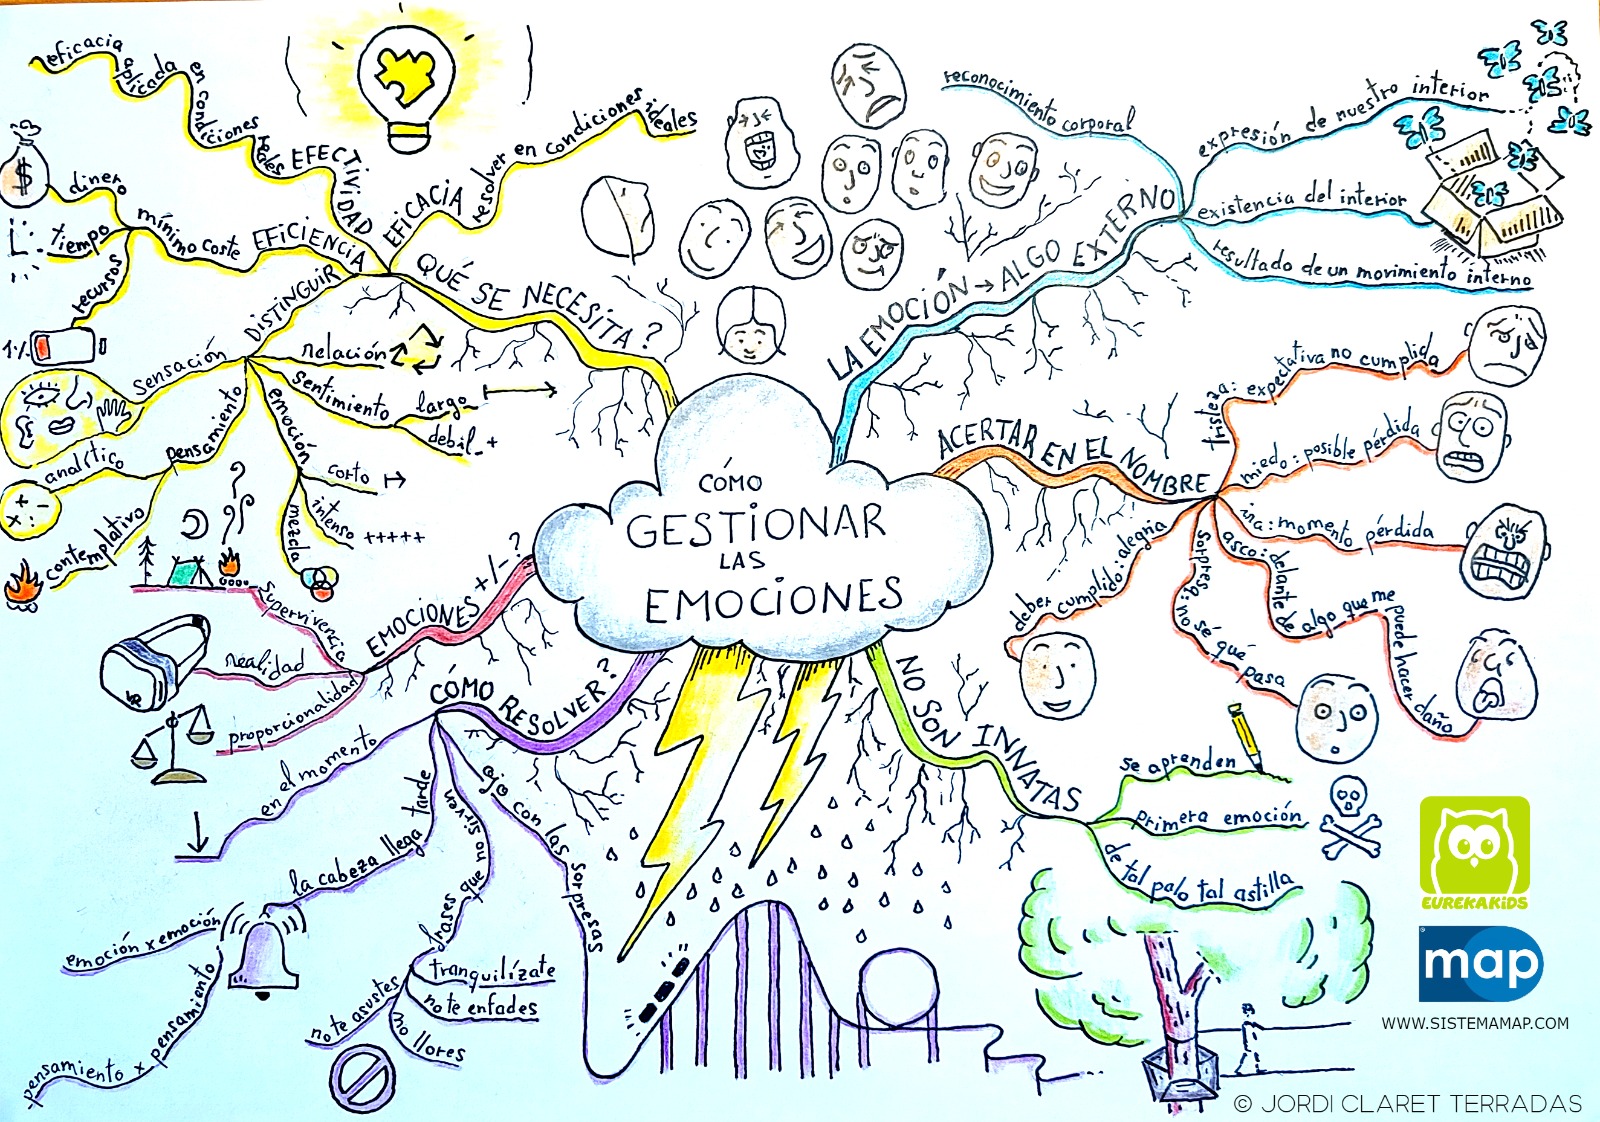 CÓMO
GESTIONAR
LAS
EMOCIONES
LA EMOCIÓN → ALGO EXTERNO
reconocimiento corporal
expresión de nuestro interior
existencia del interior
resultado de un movimiento interno
ACERTAR EN EL NOMBRE
tristeza: expectativa no cumplida
miedo: posible pérdida
ira: momento pérdida
asco: delante de algo que me puede hacer daño
sorpresa: no sé qué pasa
deber cumplido: alegría
NO SON INNATAS
se aprenden
primera emoción
de tal palo tal astilla
CÓMO RESOLVER?
ojo con las sorpresas
frases que no sirven
tranquilízate
no te enfades
no llores
no te asustes
la cabeza llega tarde
emoción x emoción
pensamiento x pensamiento
en el momento
EMOCIONES +/- ?
supervivencia
realidad
proporcionalidad
QUÉ SE NECESITA?
EFICACIA
resolver en condiciones ideales
EFECTIVIDAD
eficacia aplicada en condiciones reales
EFICIENCIA
mínimo coste
dinero
$
tiempo
recursos
1%
DISTINGUIR
sensación
pensamiento
analítico
+ - x :
contemplativo
emoción
corto
intenso +++++
mezcla
sentimiento
largo
débil - +
relación
EUREKAKIDS
map
WWW.SISTEMAMAP.COM
© JORDI CLARET TERRADAS